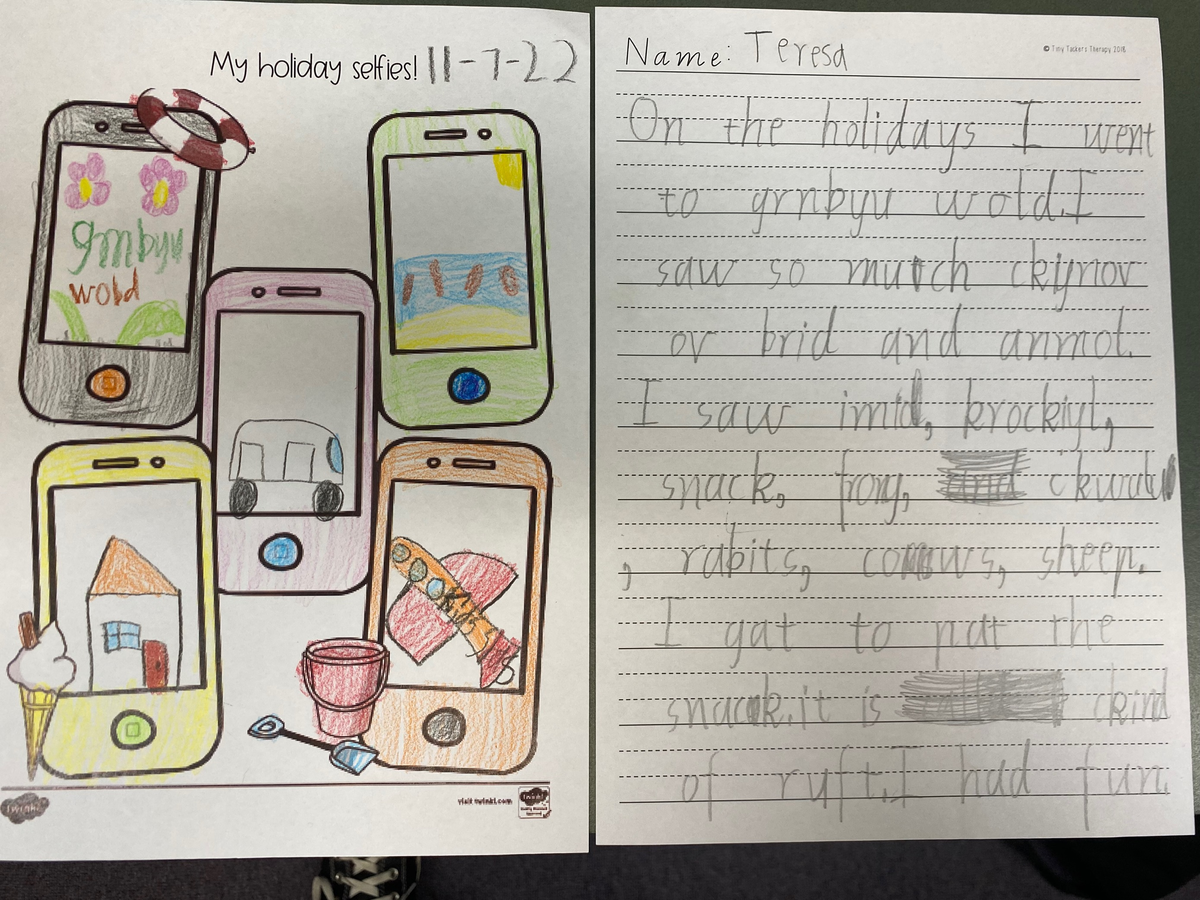 My holiday selfies! 11-7-22
grnbyu
wold
Kids
twinkl
visit twinkl.com
twinkl
Name: Teresa
© Tiny Tackers Therapy 2018
On the holidays I went
to grnbyu wold.I
saw so mutch ckynov
ov brid and anmol.
I saw imid, krockiyl,
snack, frog, ckwalu
, rabits, cowws, sheep.
I gat to pat the
snack.it is ckind
of ruft.I had fun.